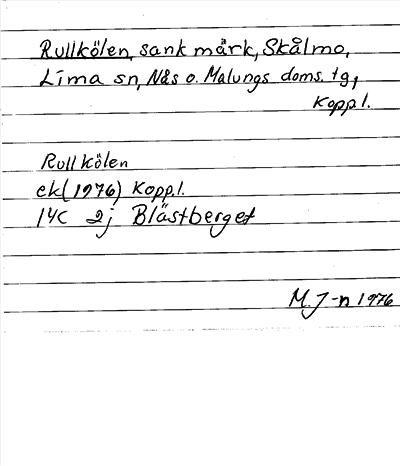 Rullkölen, sank mårk, Skålmo,
Lima sn, Nås o. Malungs doms. tg,
Koppl.
Rullkölen
ek(1976) Koppl.
14C 2j Blästberget
M. J-n 1976